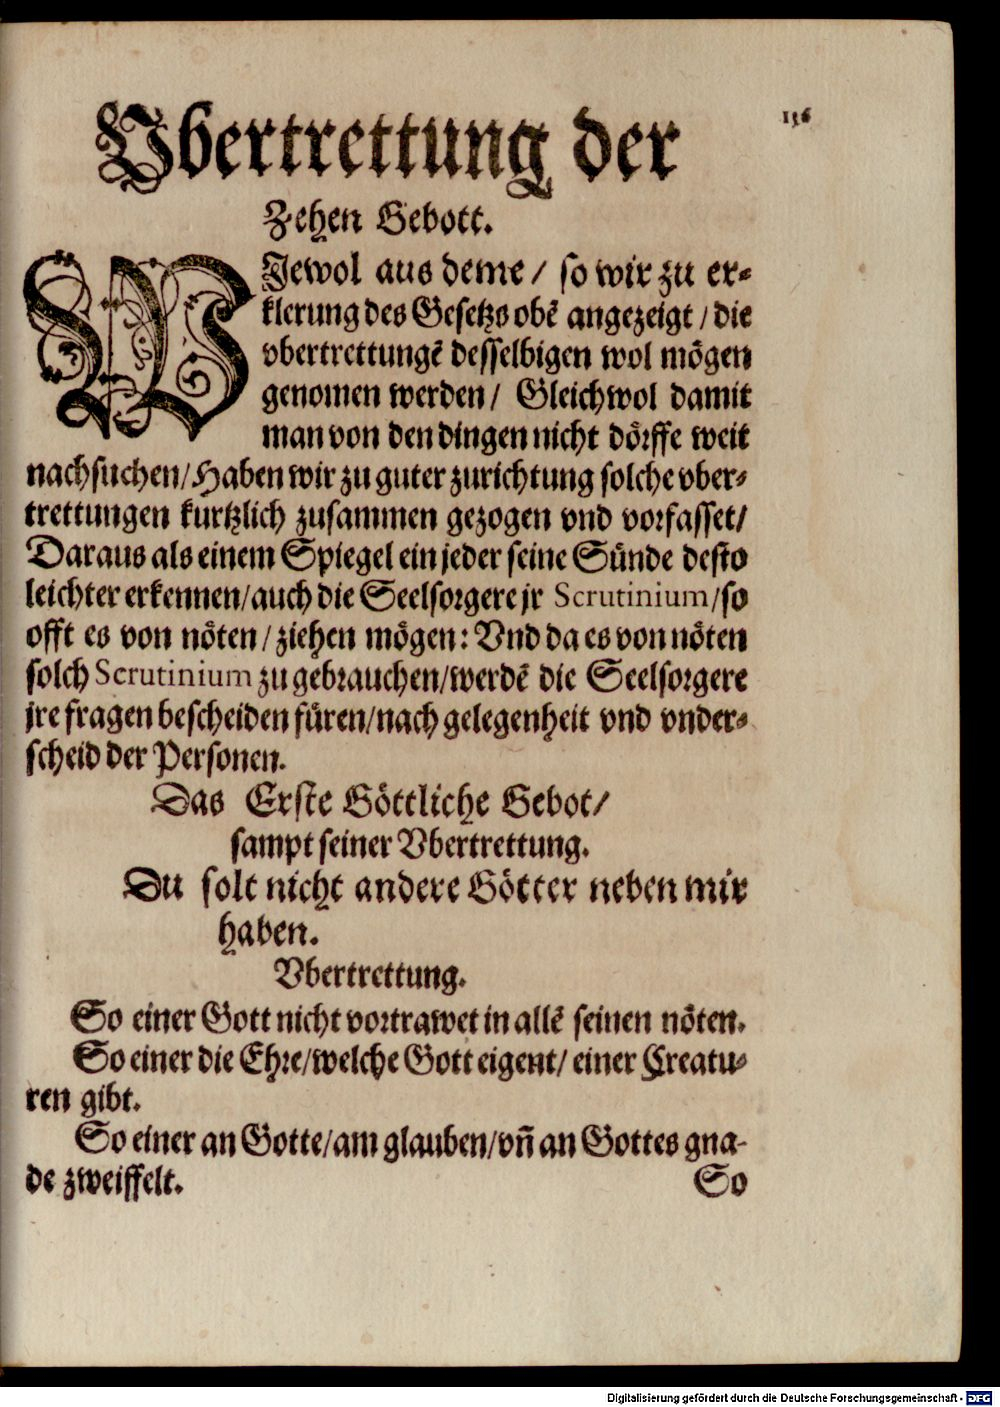 136
Vbertrettung der
Zehen Gebott.
WJewol aus deme / so wir zu er-
klerung des Gesetzs obē angezeigt / die
vbertrettungē desselbigen wol mögen
genomen werden / Gleichwol damit
man von den dingen nicht dörffe weit
nachsuchen / Haben wir zu guter zurichtung solche vber-
trettungen kurtzlich zusammen gezogen vnd vorfasset /
Daraus als einem Spiegel ein jeder seine Sünde desto
leichter erkennen / auch die Seelsorgere jr Scrutinium / so
offt es von nöten / ziehen mögen: Vnd da es von nöten
solch Scrutinium zu gebrauchen / werdē die Seelsorgere
jre fragen bescheiden füren / nach gelegenheit vnd vnder-
scheid der Personen.
Das Erste Göttliche Gebot /
sampt seiner Vbertrettung.
Du solt nicht andere Götter neben mir
haben.
Vbertrettung.
So einer Gott nicht vortrawet in allē seinen nöten.
So einer die Ehre / welche Gott eigent / einer Creatu-
ren gibt.
So einer an Gotte / am glauben / vn̄ an Gottes gna-
de zweiffelt.
So
Digitalisierung gefördert durch die Deutsche Forschungsgemeinschaft - DFG